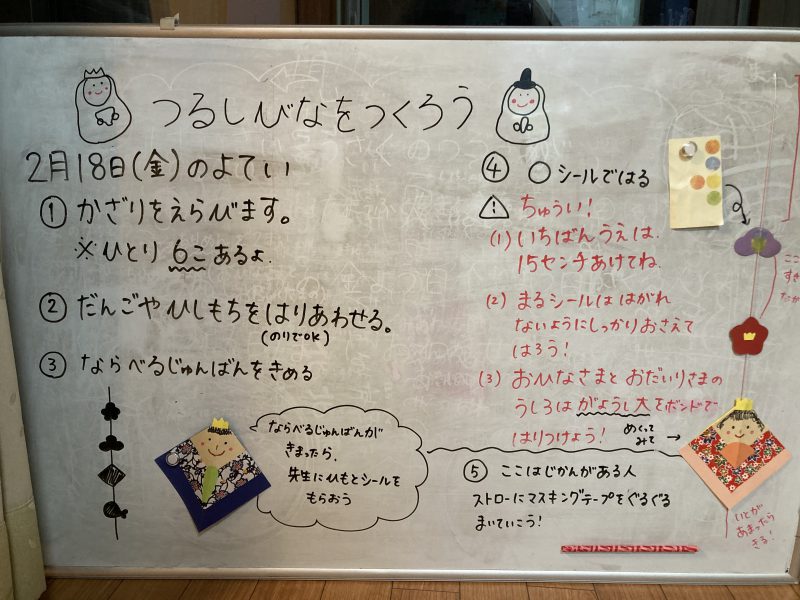 つるしびなをつくろう
2月18日(金)のよてい
① かざりをえらびます。
※ひとり 6こあるよ.
② だんごやひしもちをはりあわせる。
(のりでOK)
③ ならべるじゅんばんをきめる
ならべるじゅんばんが
きまったら、
先生にひもとシールを
もらおう
④ ○シールではる
⚠ ちゅうい!
(1) いちばんうえは、
15センチあけてね.
(2) まるシールは はがれ
ないようにしっかりおさえて
はろう!
(3) おひなさまと おだいりさまの
うしろは がようし大をボンドで
はりつけよう!
めくって
みて →
⑤ ここはじかんがある人
ストローにマスキングテープをぐるぐる
まいていこう!
いとが
あまったら
きる!